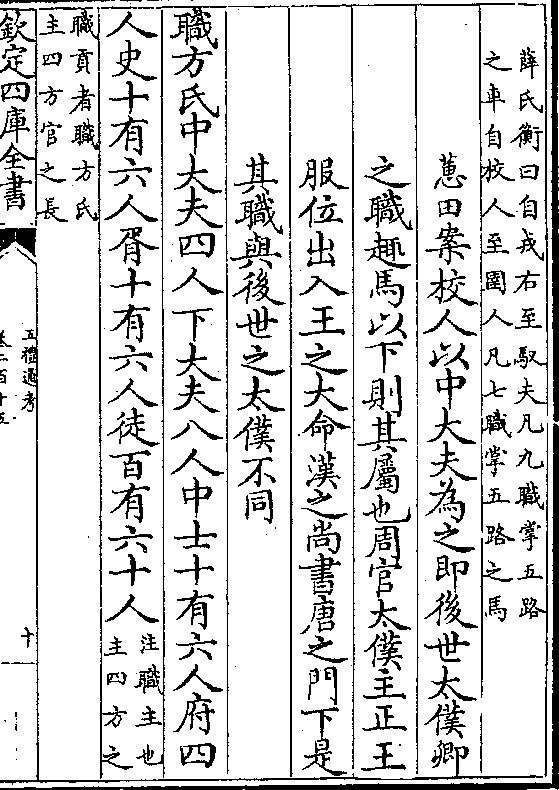 薛氏衡曰自戎右至馭夫凡九職掌五路
之車自校人至圉人凡七職掌五路之馬
蕙田案校人以中大夫為之即後世太僕卿
之職趣馬以下則其屬也周官太僕主正王
服位出入王之大命漢之尚書唐之門下是
其職與後世之太僕不同
職方氏中大夫四人下大夫八人中士十有六人府四
人史十有六人胥十有六人徒百有六十人
注職主也
主四方之
職貢者職方氏
主四方官之長
欽定四庫全書
五禮通考
卷二百十五
十